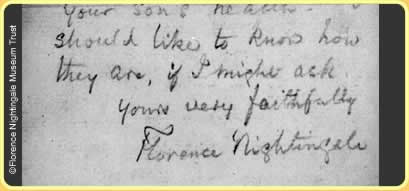 ©Florence Nightingale Museum Trust
Your son's health
should like to know how
they are, if I might ask.
Yours very faithfully
Florence Nightingale